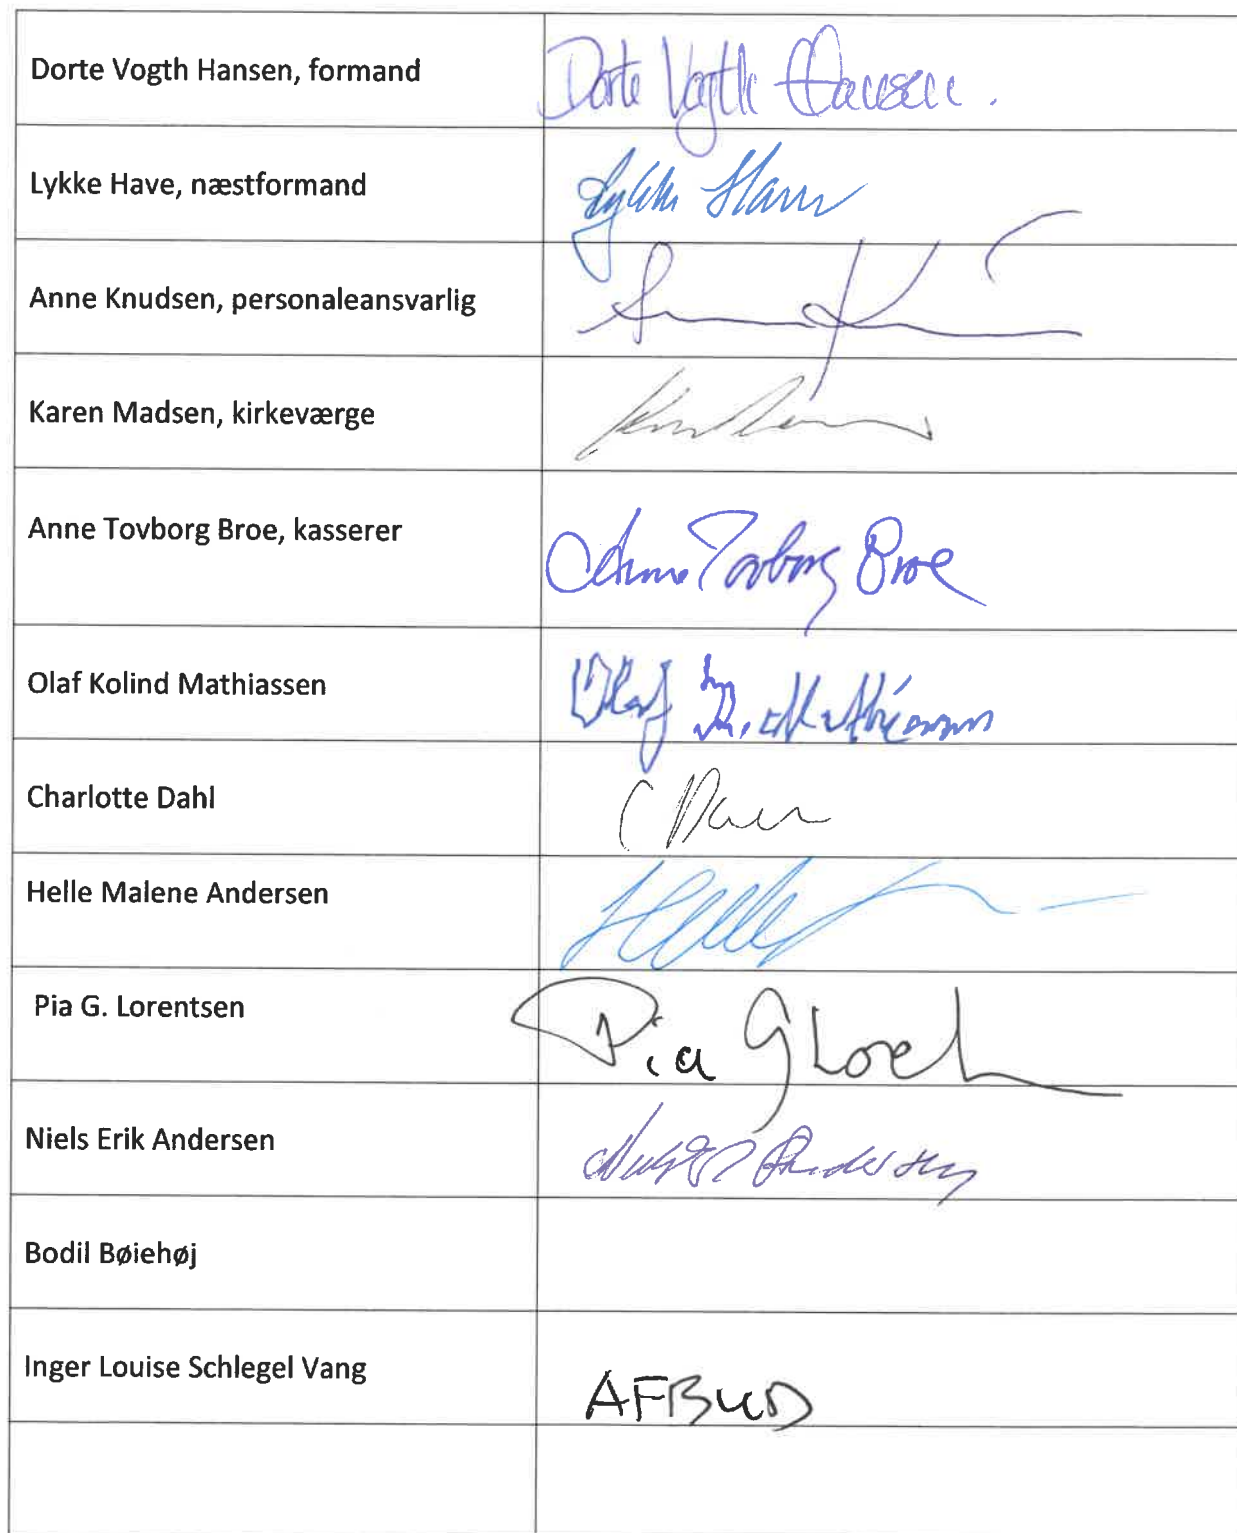 Dorte Vogth Hansen, formand
Dorte Vogth Hansen.
Lykke Have, næstformand
Lykke Have
Anne Knudsen, personaleansvarlig
Karen Madsen, kirkeværge
Anne Tovborg Broe, kasserer
Anne Tovborg Broe
Olaf Kolind Mathiassen
Olaf K. Mathiassen
Charlotte Dahl
C Dahl
Helle Malene Andersen
Helle
Pia G. Lorentsen
Pia G Lor
Niels Erik Andersen
Niels E Andersen
Bodil Bøiehøj
Inger Louise Schlegel Vang
AFBUD